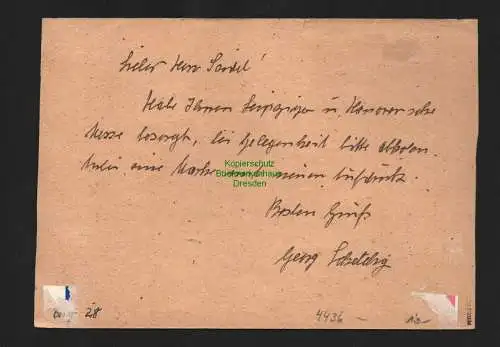 Lieber Herr Seidel!
Habe Ihnen Leipziger u. Hannoversche
Messe besorgt, bei Gelegenheit bitte abholen.
eine Marke meinen
Besten Gruß
Georg
Kopierschutz
Briefmarkenhaus
Dresden
28
4436 –